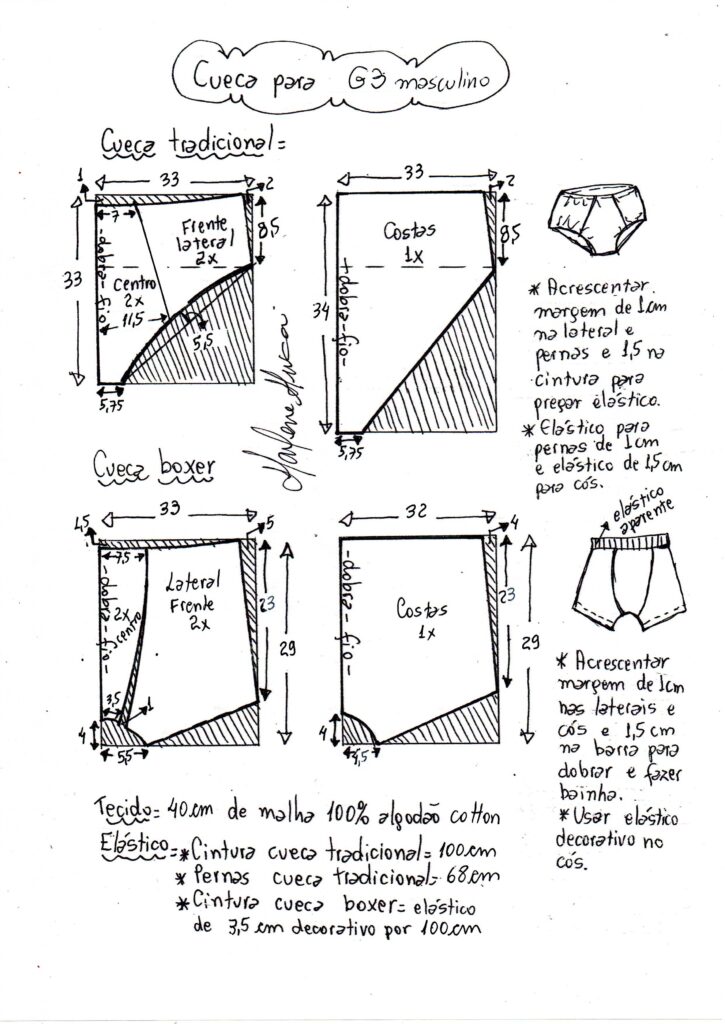 Cueca para G3 masculino
Cueca tradicional=
33
1
2
33
7
Frente
lateral
2x
8,5
-dobra-fio-
Centro
2x
11,5
5,5
5,75
33
2
Costas
1x
8,5
34
+dobra-fio-
5,75
* Acrescentar
margem de 1cm
na lateral e
pernas e 1,5 na
cintura para
pregar elástico.
* Elástico para
pernas de 1cm
e elástico de 1,5cm
para cós.
Marlene Mukai
Cueca boxer
33
1,5
5
7,5
-dobra-fio-
2x
centro
Lateral
Frente
2x
23
29
3,5
1
4
5,5
32
4
-dobra-fio-
Costas
1x
23
29
4
4,5
elástico
aparente
* Acrescentar
margem de 1cm
nas laterais e
cós e 1,5 cm
na barra para
dobrar e fazer
bainha.
* Usar elástico
decorativo no
cós.
Tecido= 40cm de malha 100% algodão cotton
Elástico=*Cintura cueca tradicional= 100cm
* Pernas cueca tradicional= 68cm
*Cintura cueca boxer= elástico
de 3,5 cm decorativo por 100cm